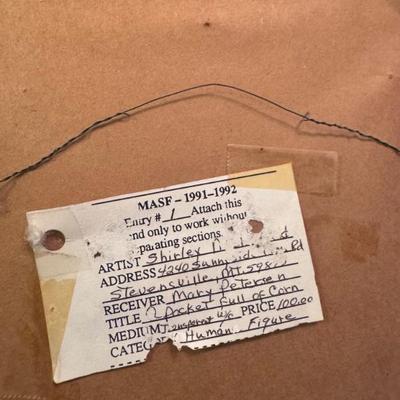 MASF - 1991-1992
Entry # 1 Attach this
end only to work without
separating sections.
ARTIST Shirley
ADDRESS 4240 Sunnyside Rd
Stevensville, MT. 5987
RECEIVER Mary Petersen
TITLE Pocket Full of Corn
MEDIUM Transparent W/C PRICE 100.00
CATEG Human Figure